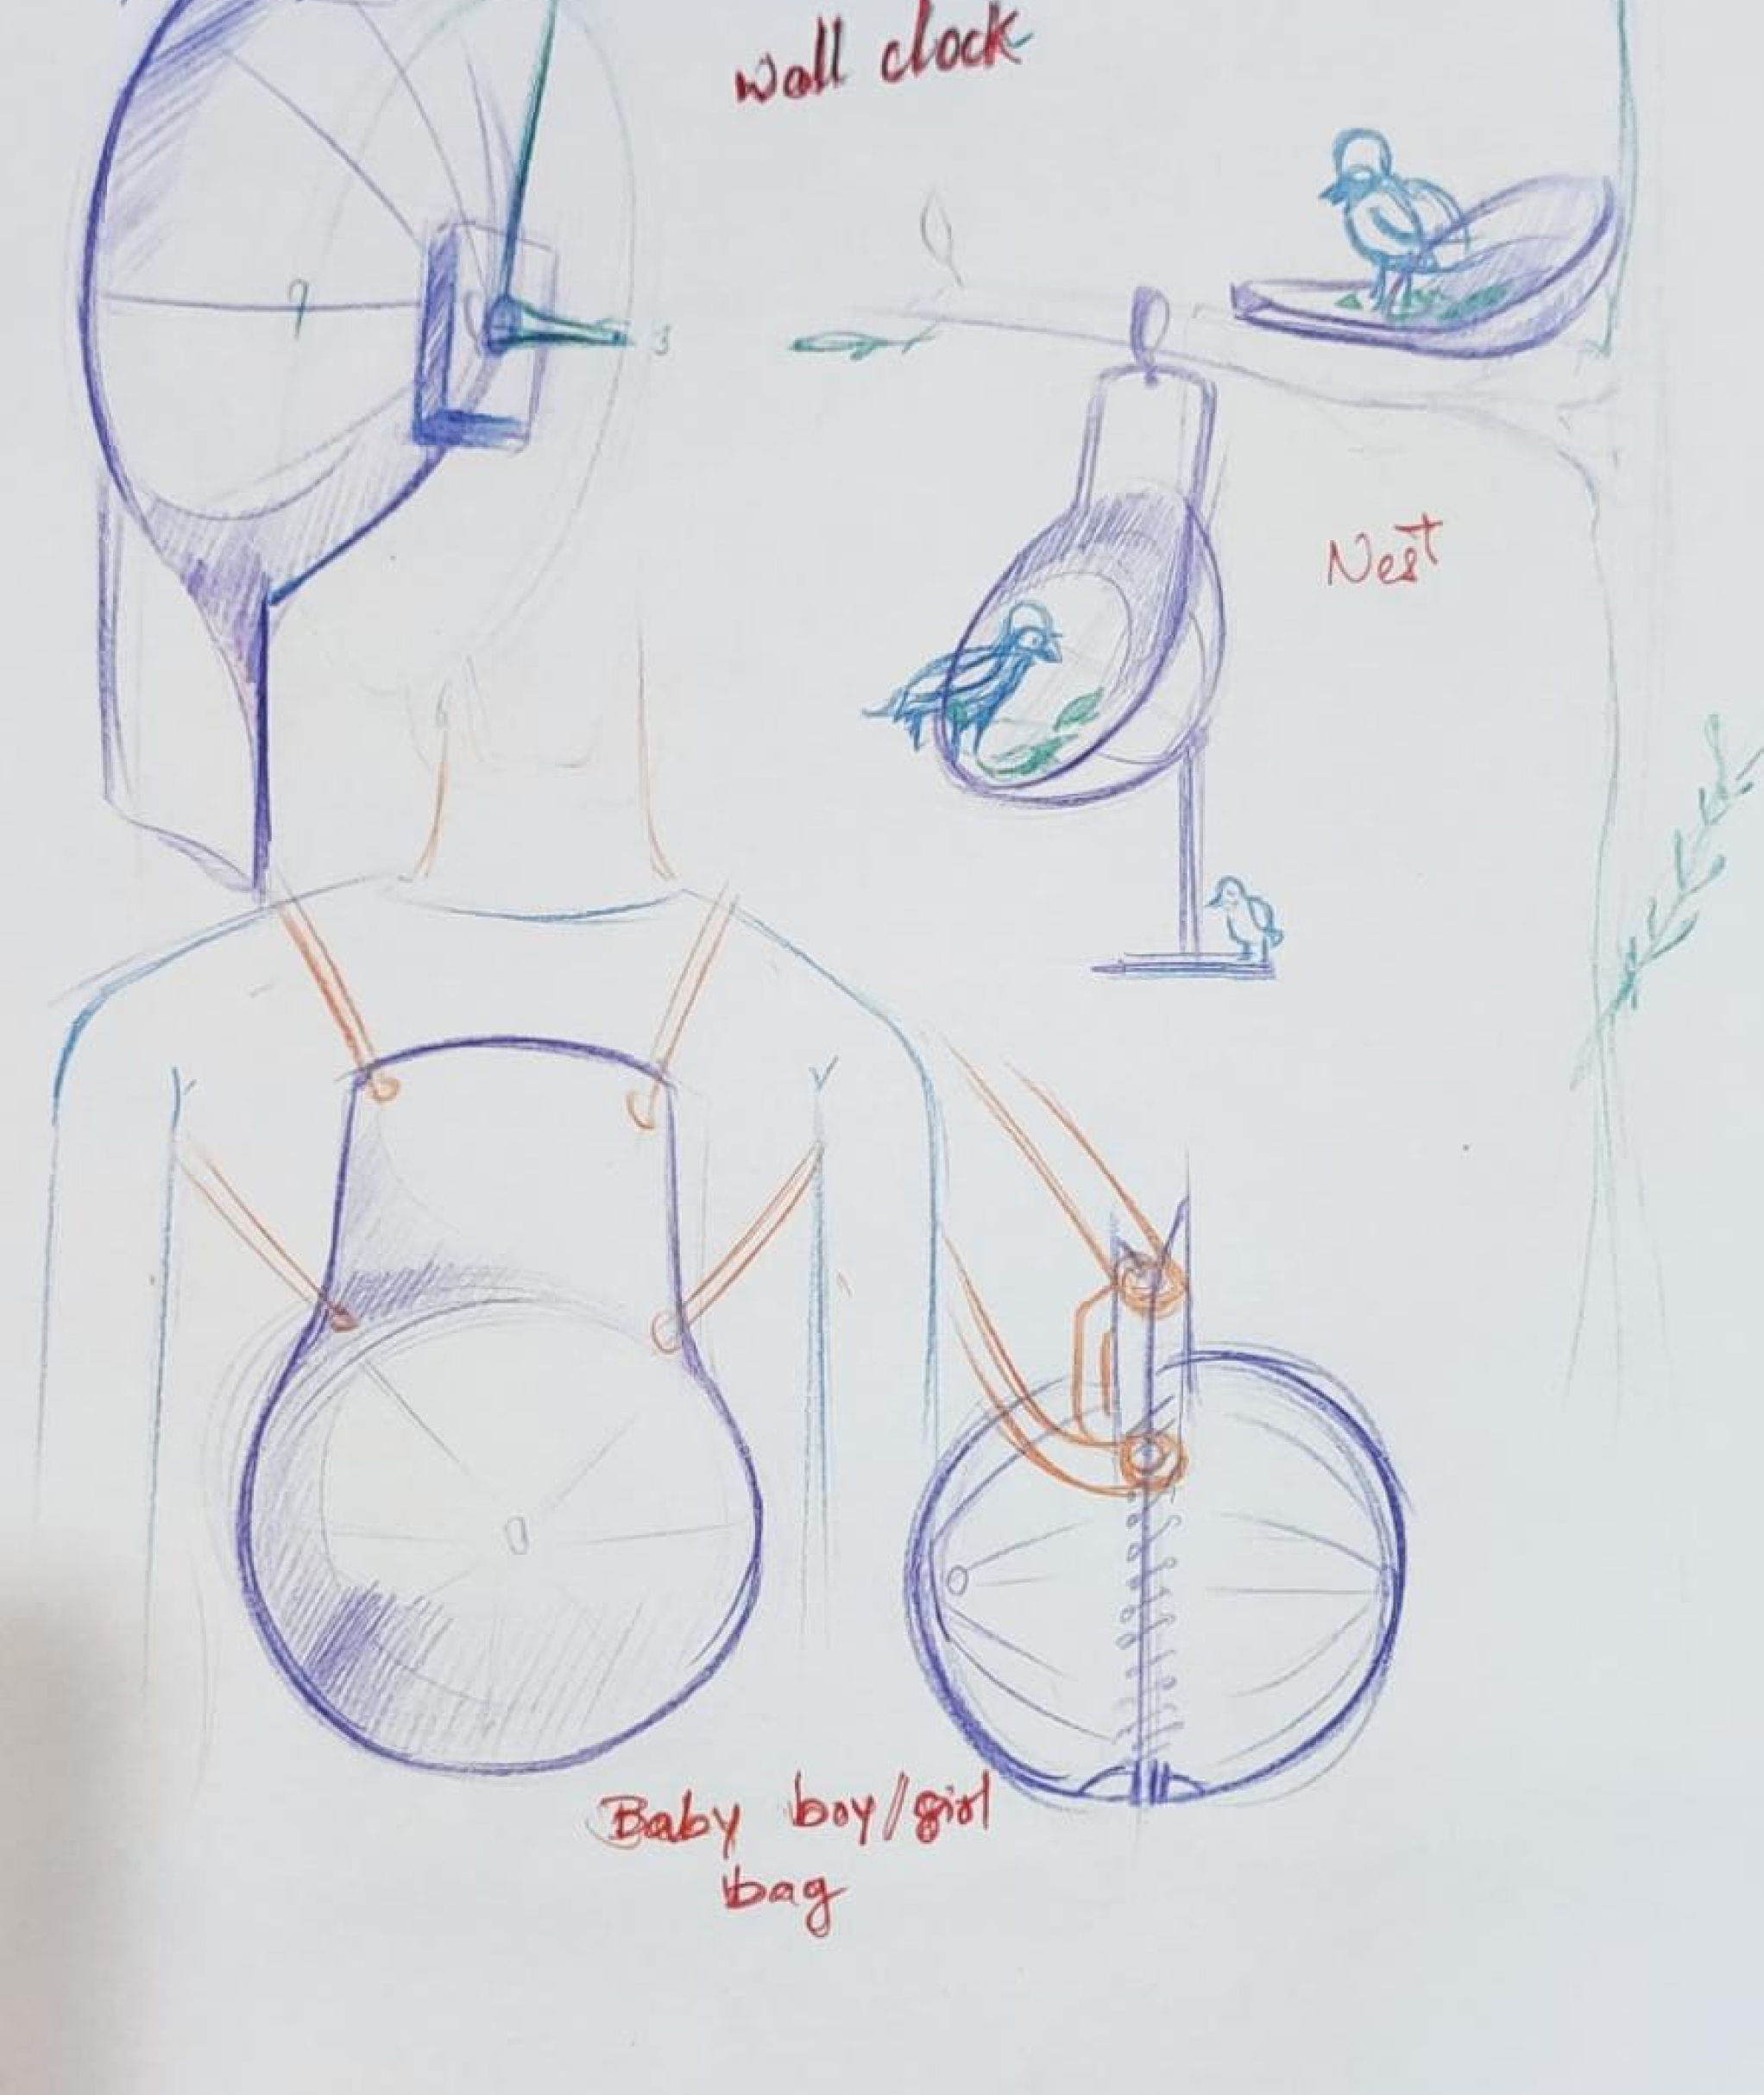 wall clock
3
Nest
Baby boy/girl
bag